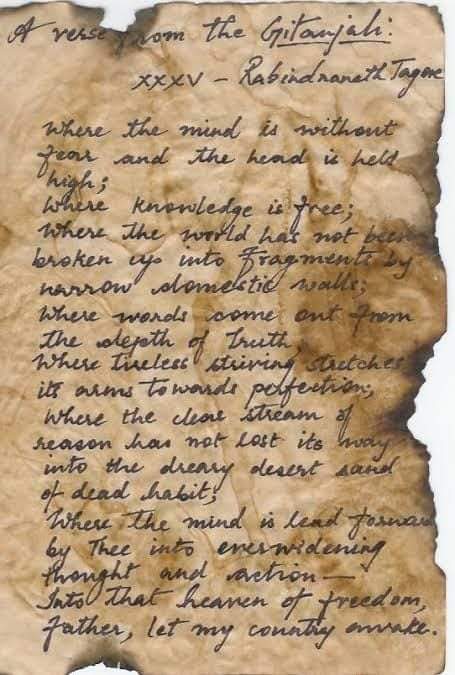 A verse from the Gitanjali:
XXXV - Rabindranath Tagore
Where the mind is without
fear and the head is held
high;
Where knowledge is free;
Where the world has not been
broken up into fragments by
narrow domestic walls;
Where words come out from
the depth of Truth,
Where tireless striving stretches
its arms towards perfection;
Where the clear stream of
reason has not lost its way
into the dreary desert sand
of dead habit;
Where the mind is lead forward
by Thee into everwidening
thought and action—
Into that heaven of freedom,
father, let my country awake.